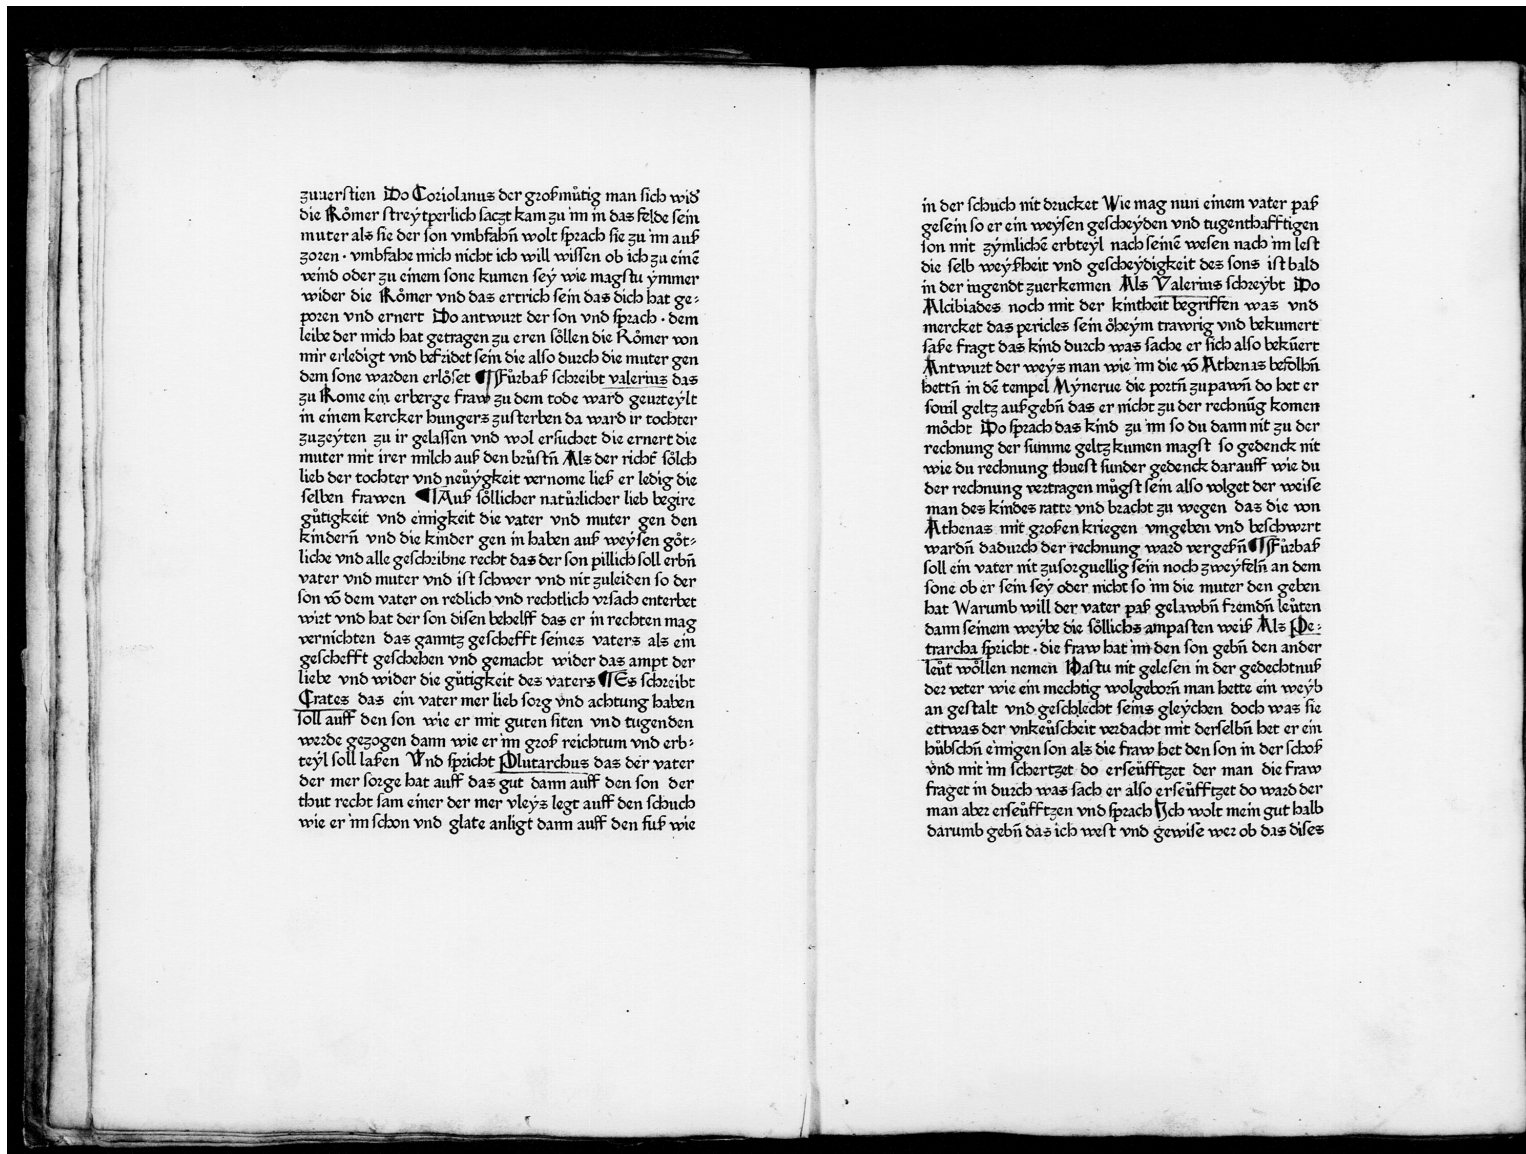 zuuerstien Do Coriolanus der großmůtig man sich wid᷑
die Rŏmer streÿtperlich saczt kam zu im in das felde sein
muter als sie der son vmbfahñ wolt sprach sie zu im auß
zoren · vmbfahe mich nicht ich will wissen ob ich zu einẽ
veind oder zu einem sone kumen seÿ wie magstu ÿmmer
wider die Rŏmer vnd das ertrich sein das dich hat ge⸗
poren vnd ernert Do antwurt der son vnd sprach · dem
leibe der mich hat getragen zu eren sŏllen die Rŏmer von
mir erledigt vnd befridet sein die also durch die muter gen
dem sone warden erlŏset ¶ Fůrbaß schreibt valerius das
zu Rome ein erberge fraw zu dem tode ward geurteÿlt
in einem kercker hungers zusterben da ward ir tochter
zuzeÿten zu ir gelassen vnd wol ersuchet die ernert die
muter mit irer milch auß den brůstñ Als der richt᷑ sŏlch
lieb der tochter vnd neůÿgkeit vernome ließ er ledig die
selben frawen ¶ Auß sŏllicher natůrlicher lieb begire
gůtigkeit vnd einigkeit die vater vnd muter gen den
kinderñ vnd die kinder gen in haben auß weÿsen gŏt⸗
liche vnd alle geschribne recht das der son pillich soll erbñ
vater vnd muter vnd ist schwer vnd nit zuleiden so der
son võ dem vater on redlich vnd rechtlich vrsach enterbet
wirt vnd hat der son disen behelff das er in rechten mag
vernichten das ganntz geschefft seines vaters als ein
geschefft geschehen vnd gemacht wider das ampt der
liebe vnd wider die gůtigkeit des vaters ¶ Es schreibt
Crates das ein vater mer lieb sorg vnd achtung haben
soll auff den son wie er mit guten siten vnd tugenden
werde gezogen dann wie er im groß reichtum vnd erb⸗
teÿl soll laßen Vnd spricht Plutarchus das der vater
der mer sorge hat auff das gut dann auff den son der
thut recht sam einer der mer vleÿs legt auff den schuch
wie er im schon vnd glate anligt dann auff den fuß wie
in der schuch nit drucket Wie mag nun einem vater paß
gesein so er ein weÿsen gescheÿden vnd tugenthafftigen
son mit zÿmlichẽ erbteÿl nach seinẽ wesen nach im lest
die selb weÿßheit vnd gescheÿdigkeit des sons ist bald
in der iugendt zuerkennen Als Valerius schreÿbt Do
Alcibiades noch mit der kintheit begriffen was vnd
mercket das pericles sein ŏheÿm trawrig vnd bekumert
saße fragt das kind durch was sache er sich also bekũert
Antwurt der weÿs man wie im die võ Athenas befolhñ
hettñ in dẽ tempel Mÿnerue die portñ zupawñ do het er
souil geltz außgebñ das er nicht zu der rechnũg komen
mŏcht Do sprach das kind zu im so du dann nit zu der
rechnung der summe geltz kumen magst so gedenck nit
wie du rechnung thuest sunder gedenck darauff wie du
der rechnung vertragen můgst sein also volget der weise
man des kindes ratte vnd bracht zu wegen das die von
Athenas mit großen kriegen vmgeben vnd beschwert
wardñ dadurch der rechnung ward vergeßñ ¶ Fůrbaß
soll ein vater nit zusorguellig sein noch zweÿfelñ an dem
sone ob er sein seÿ oder nicht so im die muter den geben
hat Warumb will der vater paß gelawbñ fremdñ leůten
dann seinem weÿbe die sŏllichs ampasten weiß Als Pe⸗
trarcha spricht · die fraw hat im den son gebñ den ander
leůt wŏllen nemen Hastu nit gelesen in der gedechtnuß
der veter wie ein mechtig wolgeborñ man hette ein weÿb
an gestalt vnd geschlecht seins gleÿchen doch was sie
ettwas der vnkeůscheit verdacht mit derselbñ het er ein
hůbschñ einigen son als die fraw het den son in der schoß
vnd mit im schertzet do erseůfftzet der man die fraw
fraget in durch was sach er also erseůfftzet do ward der
man aber erseůfftzen vnd sprach Ich wolt mein gut halb
darumb gebñ das ich west vnd gewise wer ob das dises